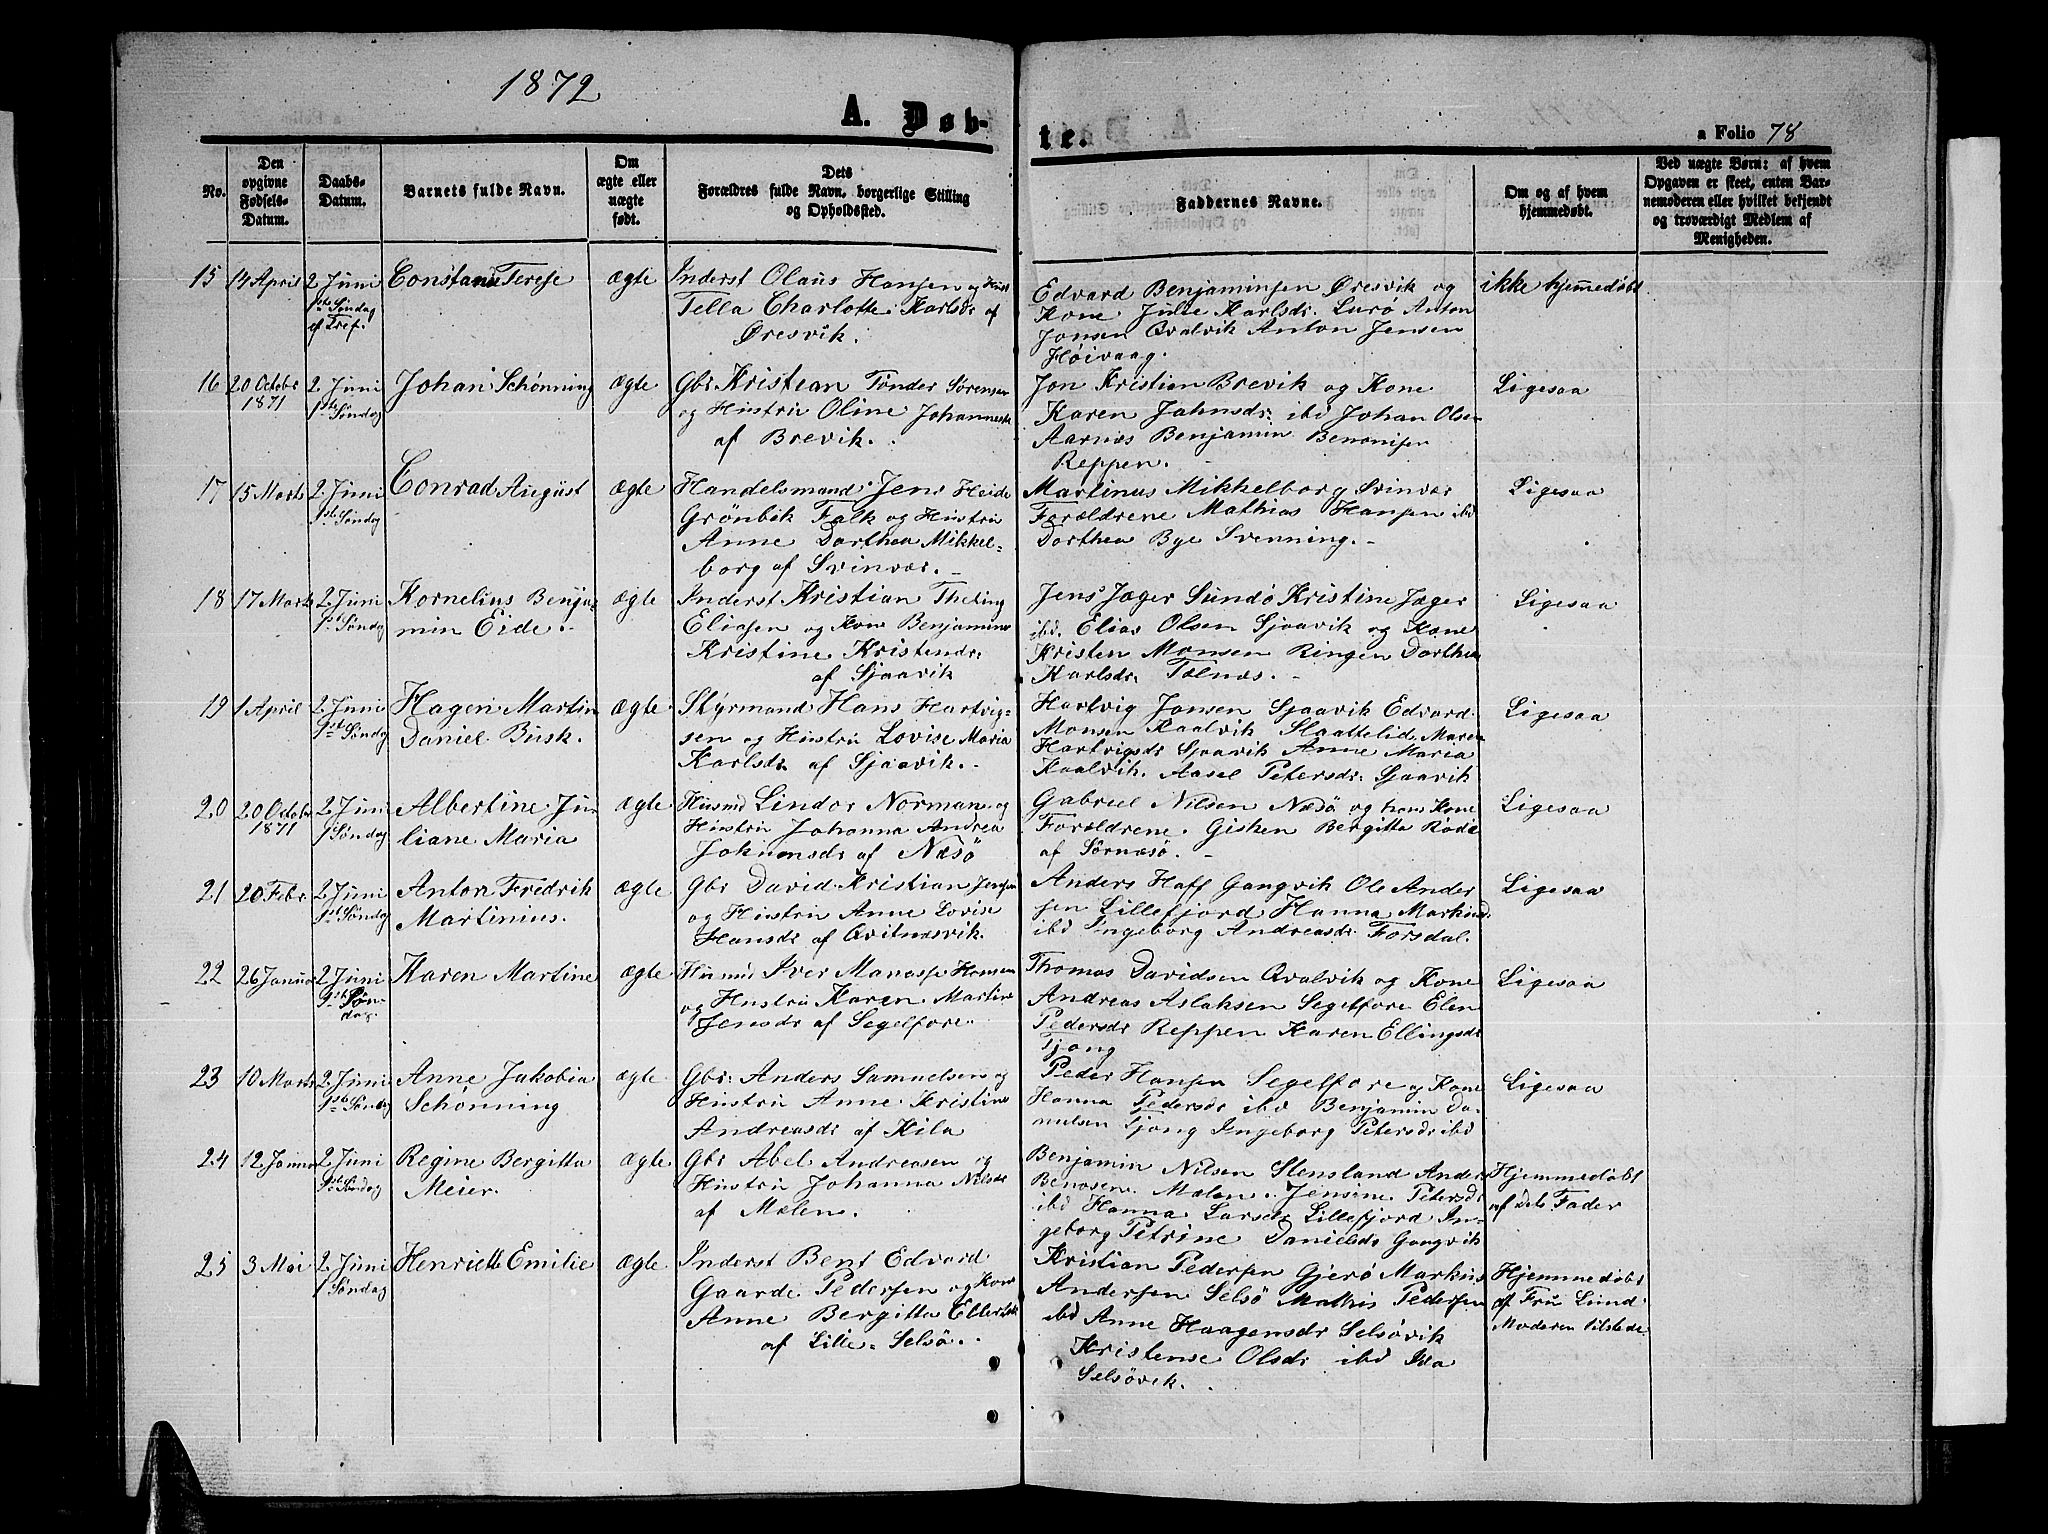 1872
A. Døb-
te.
a Folio 78
No.
Den
opgivne
Fødsels-
Datum.
Daabs-
Datum.
Barnets fulde Navn.
Om
ægte eller
uægte
født.
Dets
Forældres fulde Navn, borgerlige Stilling
og Opholdssted.
Faddernes Navne.
Om og af hvem
hjemmedøbt.
Ved uægte Børn: af hvem
Opgaven er skeet, enten Bar-
nemoderen eller hvilket bekjendt
og troværdigt Medlem af
Menigheden.
15 14 April 2 Juni
1ste Søndag
ef Tref.
Terese
ægte
Inderst Olaus Hansen og
Tella Charlotte Karlsdr af
Øresvik.
Edvard Benjaminsen Øresvik og
Kone Julie Karlsdr. Lurø Anton
Jonsen Qvalvik Anton Jensen
Høivaag.
ikke hjemmedøbt
16 20 Octobr
1871
2 Juni
1ste Søndag
Johan Schönning
ægte
Gbr Kristian Tönder Sörensen
og Hustru Oline
af Brevik.
Jon Kristian Brevik og Kone
Karen Jahnsdr. ibd Johan Olsen
Aarnæs Benjamin Benonisen
Reppen.
Ligesaa
17 15 Marts 2 Juni
1st Søndag
Conrad August
ægte
Handelsmand Jens Heide
Grönbek Falk og Hustru
Anne Dorthea Mikkel-
borg af Svinvær.
Martinus Mikkelborg Svinvær
Forældrene Mathias Hansen ibd
Dorthea Bye Svenning.
Ligesaa
18 17 Marts 2 Juni
1st Søndag
Kornelius Benja-
min Eide.
ægte
Inderst Kristian Theting
Eliasen og Kone
Kristine Kristensdr.
af Sjaavik
Jens Jæger Sundö Kristine Jæger
ibd. Elias Olsen Sjaavik og Kone
Kristen Monsen Ringen Dorthea
Karlsdr. Tælnæs.
Ligesaa
19 1 April 2 Juni
1st Søndag
Hagen Martin
Daniel Busk.
ægte
Styrmand Hans Hartvig-
sen og Hustru Lovise Maria
Karlsdr af Sjaavik.
Hartvig Jonsen Sjaavik Edvard
Monsen Kaalvik Slaattelid Maren
Hartvigsdr Sjaavik Anne Maria
Kaalvik. Aasel Petersdr. Sjaavik
Ligesaa
20 20 Octobr
1871
2 Juni
1st Søndag
Albertine Ju-
liane Maria
ægte
Husmd Lindor Norman og
Hustru Johanna Andrea
af Næsö
Gabriel Nilsen Næsö og hans Kone
Forældrene. Gisken Bergitta
af Sörnæsö.
Ligesaa
21 20 Febr 2 Juni
1st Søndag
Anton Fredrik
Martinius.
ægte
Gbr David Kristian Jensen
og Hustru Anne Lovise
Hansdr af Qvitnæsvik.
Anders Haff Gangvik Ole Ander
sen Lillefjord Hanna
ibd Ingeborg Andreasdr. Forsdal.
Ligesaa
22 26 Januar 2 Juni
1st Søn-
dag.
Karen Martine
ægte
Husmd Iver Manasse Hansen
og Hustru Karen Martine
Jensdr af Segelfore.
Thomas Davidsen Qvalvik og Kone
Andreas Aslaksen Segelfore Elen
Pedersdr Reppen Karen Ellingsdr
Tjong
Ligesaa
23 10 Marts 2 Juni
1st Søndag
Anne Jakobia
Schönning
ægte
Gbr. Anders Samuelsen og
Hustru Anne Kristine
Andreasdr af Kila
Peder Hansen Segelfore og Kone
Hanna Pedersdr ibd Benjamin Da-
nielsen Tjong Ingeborg Petersdr ibd
Ligesaa
24 12 Januar 2 Juni
1st Søndag
Regine Bergitta
Meier.
ægte
Gbr Abel Andreasen og
Hustru Johanna Nilsdr
af Mælen.
Benjamin Nilsen Stensland Anders
Mælen. Jensine Petersdr
ibd Hanna Larsdr Lillefjord In-
geborg Petrine Danielsdr Gangvik
Hjemmedøbt
af dets Fader
25 3 Mai 2 Juni
1 Søndag
Henriette Emilie
ægte
Inderst Bent Edvard
Gaarde Pedersen og Kone
Anne Bergitta
af Lille. Selsö.
Kristian Pedersen Gjerö Markus
Andersen Selsö Mathis Pedersen
ibd Anne Haagensdr Selsövik
Kristense Olsdr ibd
Selsövik.
Hjemmedøbt
af Fru Lund
Moderen tilstede